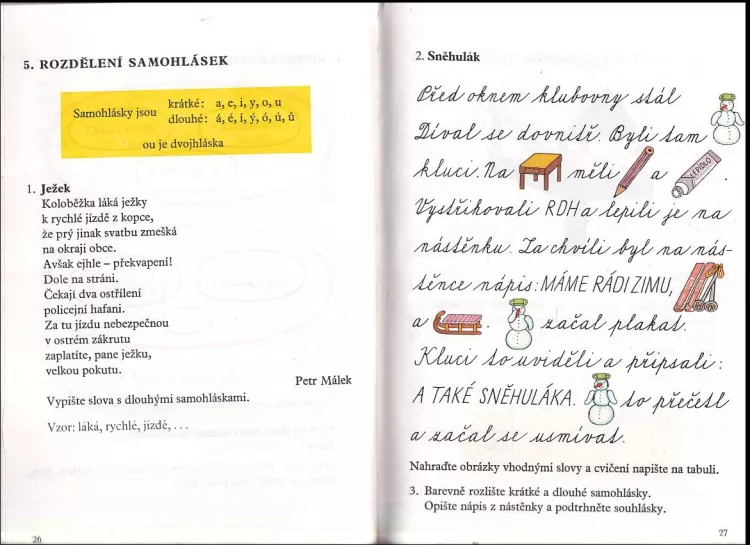 5. ROZDĚLENÍ SAMOHLÁSEK
Samohlásky jsou
krátké: a, e, i, y, o, u
dlouhé: á, é, í, ý, ó, ú, ů
ou je dvojhláska
1. Ježek
Koloběžka láká ježky
k rychlé jízdě z kopce,
že prý jinak svatbu zmešká
na okraji obce.
Avšak ejhle – překvapení!
Dole na stráni.
Čekají dva ostřílení
policejní hafani.
Za tu jízdu nebezpečnou
v ostrém zákrutu
zaplatíte, pane ježku,
velkou pokutu.
Petr Málek
Vypište slova s dlouhými samohláskami.
Vzor: láká, rychlé, jízdě, ...
26
2. Sněhulák
Před oknem klubovny stál
Díval se dovnitř. Byli tam
kluci. Na měli a
LEPIDLO
Vystřihovali RDH a lepili je na
nástěnku. Za chvíli byl na nás-
těnce nápis: MÁME RÁDI ZIMU,
a . začal plakat.
Kluci to uviděli a připsali:
A TAKÉ SNĚHULÁKA. to přečetl
a začal se usmívat.
Nahraďte obrázky vhodnými slovy a cvičení napište na tabuli.
3. Barevně rozlište krátké a dlouhé samohlásky.
Opište nápis z nástěnky a podtrhněte souhlásky.
27